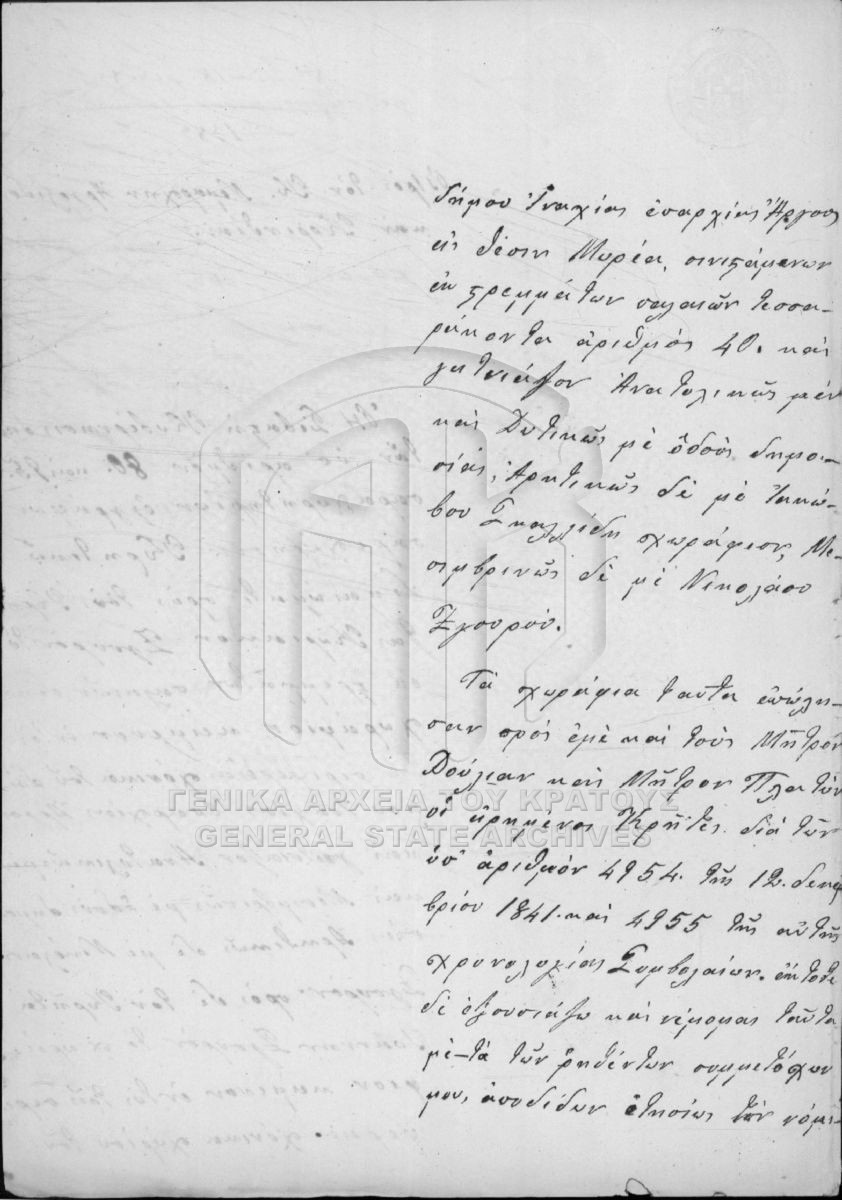 δήμου Ἰναχίας ἐπαρχίας Ἄργους
εἰς θέσιν Μωρέα, συνιστάμενων
ἐκ στρεμμάτων παλαιῶν τεσσα-
ράκοντα ἀριθμὸς 40. καὶ
γητνιάζον Ἀνατολικῶς μὲν
καὶ Δυτικῶς μὲ ὁδοὺς δημο-
σίας, Ἀρκτικῶς δὲ μὲ Ἰακώ-
βου Σκαλλίδη χωράφιον, Με-
σιμβρινῶς δὲ μὲ Νικολάου
Ζγουρού.
Τὰ χωράφια ταυτα ἐπώλη-
σαν πρὸς ἐμὲ καὶ τοὺς Μῆτρον
Δούλιαν καὶ Μῆτρον Πλατὴν
οἱ εἰρημενοι Κρῆτες διὰ τῶν
ὑπ' ἀριθμὸν 4954. τῆς 12. δεκεμ
βρίου 1841. καὶ 4955 τῆς αὐτῆς
χρονολογίας Συμβολαίων. ἔκτοτε
δὲ ἐξουσιάζω καὶ νέμομαι ταῦτα
μὲ-τὰ τῶν ῥηθέντων συμμετόχων
μου, ἀποδίδων ἐτησίως τὸν νόμι-
ΓΕΝΙΚΑ ΑΡΧΕΙΑ ΤΟΥ ΚΡΑΤΟΥΣ
GENERAL STATE ARCHIVES